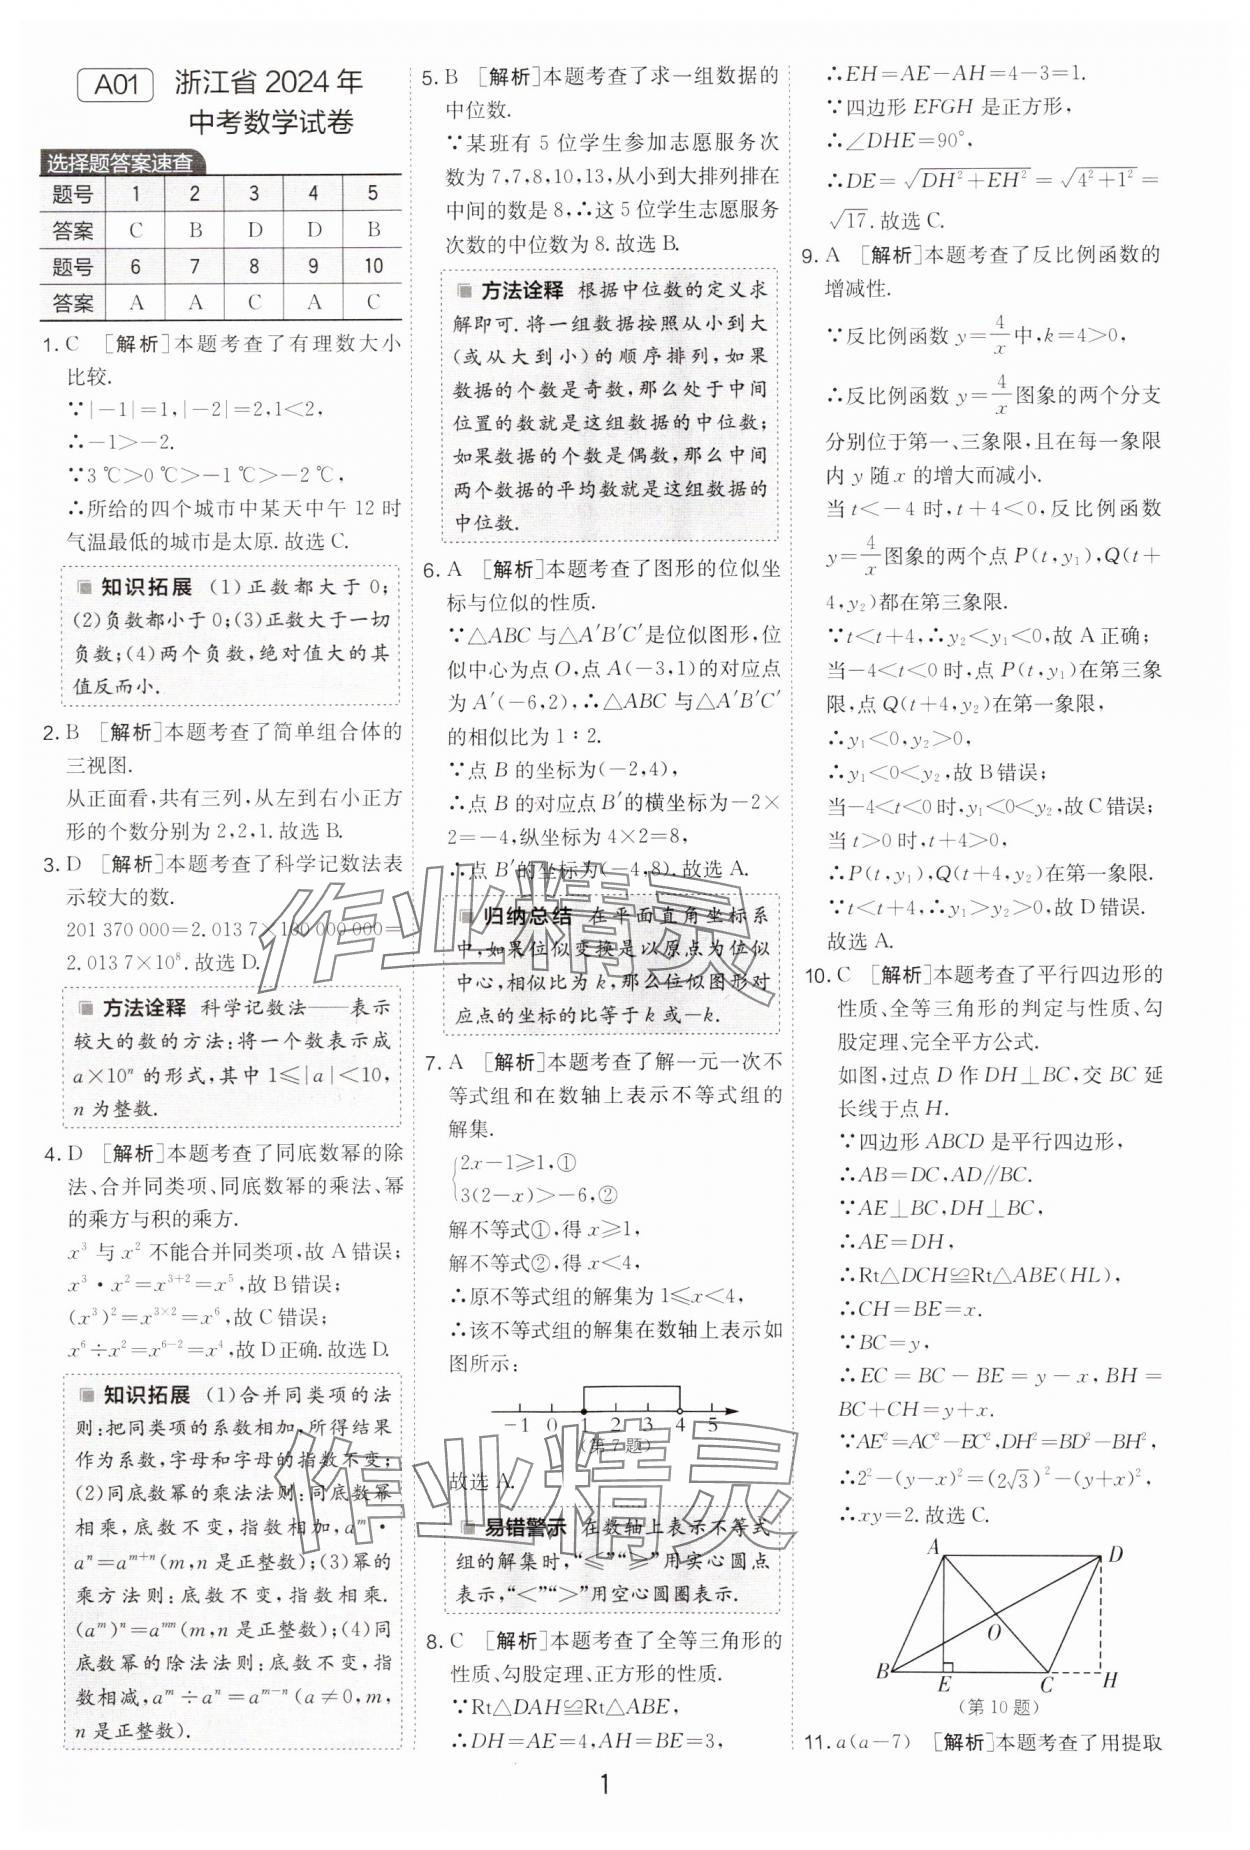 A01 浙江省 2024 年
中考数学试卷
选择题答案速查
题号 1 2 3 4 5
答案 C B D D B
题号 6 7 8 9 10
答案 A A C A C
1. C [解析]本题考查了有理数大小
比较.
∵|－1|=1,|－2|=2,1<2,
∴－1>－2.
∵3 ℃>0 ℃>－1 ℃>－2 ℃,
∴所给的四个城市中某天中午 12 时
气温最低的城市是太原. 故选 C.
知识拓展 (1)正数都大于 0;
(2)负数都小于 0;(3)正数大于一切
负数;(4)两个负数,绝对值大的其
值反而小.
2. B [解析]本题考查了简单组合体的
三视图.
从正面看,共有三列,从左到右小正方
形的个数分别为 2,2,1. 故选 B.
3. D [解析]本题考查了科学记数法表
示较大的数.
201 370 000=2.013 7×100 000 000=
2.013 7×10⁸. 故选 D.
方法诠释 科学记数法——表示
较大的数的方法:将一个数表示成
a×10ⁿ 的形式,其中 1≤|a|<10,
n 为整数.
4. D [解析]本题考查了同底数幂的除
法、合并同类项、同底数幂的乘法、幂
的乘方与积的乘方.
x³ 与 x² 不能合并同类项,故 A 错误;
x³·x²=x³⁺²=x⁵,故 B 错误;
(x³)²=x³ˣ²=x⁶,故 C 错误;
x⁶÷x²=x⁶⁻²=x⁴,故 D 正确. 故选 D.
知识拓展 (1)合并同类项的法
则:把同类项的系数相加,所得结果
作为系数,字母和字母的指数不变;
(2)同底数幂的乘法法则:同底数幂
相乘,底数不变,指数相加,aᵐ·
aⁿ=aᵐ⁺ⁿ(m,n 是正整数);(3)幂的
乘方法则:底数不变,指数相乘.
(aᵐ)ⁿ=aᵐⁿ(m,n 是正整数);(4)同
底数幂的除法法则:底数不变,指
数相减,aᵐ÷aⁿ=aᵐ⁻ⁿ(a≠0,m,
n 是正整数).
5. B [解析]本题考查了求一组数据的
中位数.
∵某班有 5 位学生参加志愿服务次
数为 7,7,8,10,13,从小到大排列排在
中间的数是 8,∴这 5 位学生志愿服务
次数的中位数为 8. 故选 B.
方法诠释 根据中位数的定义求
解即可. 将一组数据按照从小到大
(或从大到小)的顺序排列,如果
数据的个数是奇数,那么处于中间
位置的数就是这组数据的中位数;
如果数据的个数是偶数,那么中间
两个数据的平均数就是这组数据的
中位数.
6. A [解析]本题考查了图形的位似坐
标与位似的性质.
∵△ABC 与△A′B′C′是位似图形,位
似中心为点 O,点 A(－3,1)的对应点
为 A′(－6,2),∴△ABC 与△A′B′C′
的相似比为 1∶2.
∵点 B 的坐标为(－2,4),
∴点 B 的对应点 B′的横坐标为－2×
2=－4,纵坐标为 4×2=8,
∴点 B′的坐标为(－4,8). 故选 A.
归纳总结 在平面直角坐标系
中,如果位似变换是以原点为位似
中心,相似比为 k,那么位似图形对
应点的坐标的比等于 k 或－k.
7. A [解析]本题考查了解一元一次不
等式组和在数轴上表示不等式组的
解集.
{2x－1≥1,①
3(2－x)>－6,②
解不等式①,得 x≥1,
解不等式②,得 x<4,
∴原不等式组的解集为 1≤x<4,
∴该不等式组的解集在数轴上表示如
图所示:
－1 0 1 2 3 4 5
(第 7 题)
故选 A.
易错警示 在数轴上表示不等式
组的解集时,“≤”“≥”用实心圆点
表示,“<”“>”用空心圆圈表示.
8. C [解析]本题考查了全等三角形的
性质、勾股定理、正方形的性质.
∵Rt△DAH≌Rt△ABE,
∴DH=AE=4,AH=BE=3,
∴EH=AE－AH=4－3=1.
∵四边形 EFGH 是正方形,
∴∠DHE=90°,
∴DE=√(DH²+EH²)=√(4²+1²)=
√17. 故选 C.
9. A [解析]本题考查了反比例函数的
增减性.
∵反比例函数 y=4/x 中,k=4>0,
∴反比例函数 y=4/x 图象的两个分支
分别位于第一、三象限,且在每一象限
内 y 随 x 的增大而减小.
当 t<－4 时,t+4<0,反比例函数
y=4/x 图象的两个点 P(t,y₁),Q(t+
4,y₂)都在第三象限.
∵t<t+4,∴y₂<y₁<0,故 A 正确;
当－4<t<0 时,点 P(t,y₁)在第三象
限,点 Q(t+4,y₂)在第一象限,
∴y₁<0,y₂>0,
∴y₁<0<y₂,故 B 错误;
当－4<t<0 时,y₁<0<y₂,故 C 错误;
当 t>0 时,t+4>0,
∴P(t,y₁),Q(t+4,y₂)在第一象限.
∵t<t+4,∴y₁>y₂>0,故 D 错误.
故选 A.
10. C [解析]本题考查了平行四边形的
性质、全等三角形的判定与性质、勾
股定理、完全平方公式.
如图,过点 D 作 DH⊥BC,交 BC 延
长线于点 H.
∵四边形 ABCD 是平行四边形,
∴AB=DC,AD∥BC.
∵AE⊥BC,DH⊥BC,
∴AE=DH,
∴Rt△DCH≌Rt△ABE(HL),
∴CH=BE=x.
∵BC=y,
∴EC=BC－BE=y－x,BH=
BC+CH=y+x.
∵AE²=AC²－EC²,DH²=BD²－BH²,
∴2²－(y－x)²=(2√3)²－(y+x)²,
∴xy=2. 故选 C.
A D
O
B E C H
(第 10 题)
11. a(a－7) [解析]本题考查了用提取
1
作业精灵
作业精灵